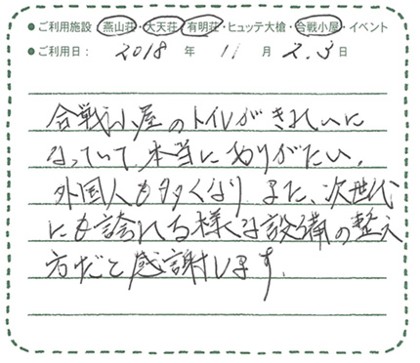 ●ご利用施設：燕山荘・大天荘・有明荘・ヒュッテ大槍・合戦小屋・イベント
●ご利用日：2018年11月2.3日
合戦小屋のトイレがきれいに
なっていて、本当にありがたい。
外国人も多くなり、また、次世代
にも誇れる様な設備の整え
方だと感謝します。